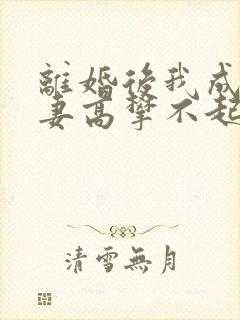 離婚後我成
妻高攀不起
清雪無月